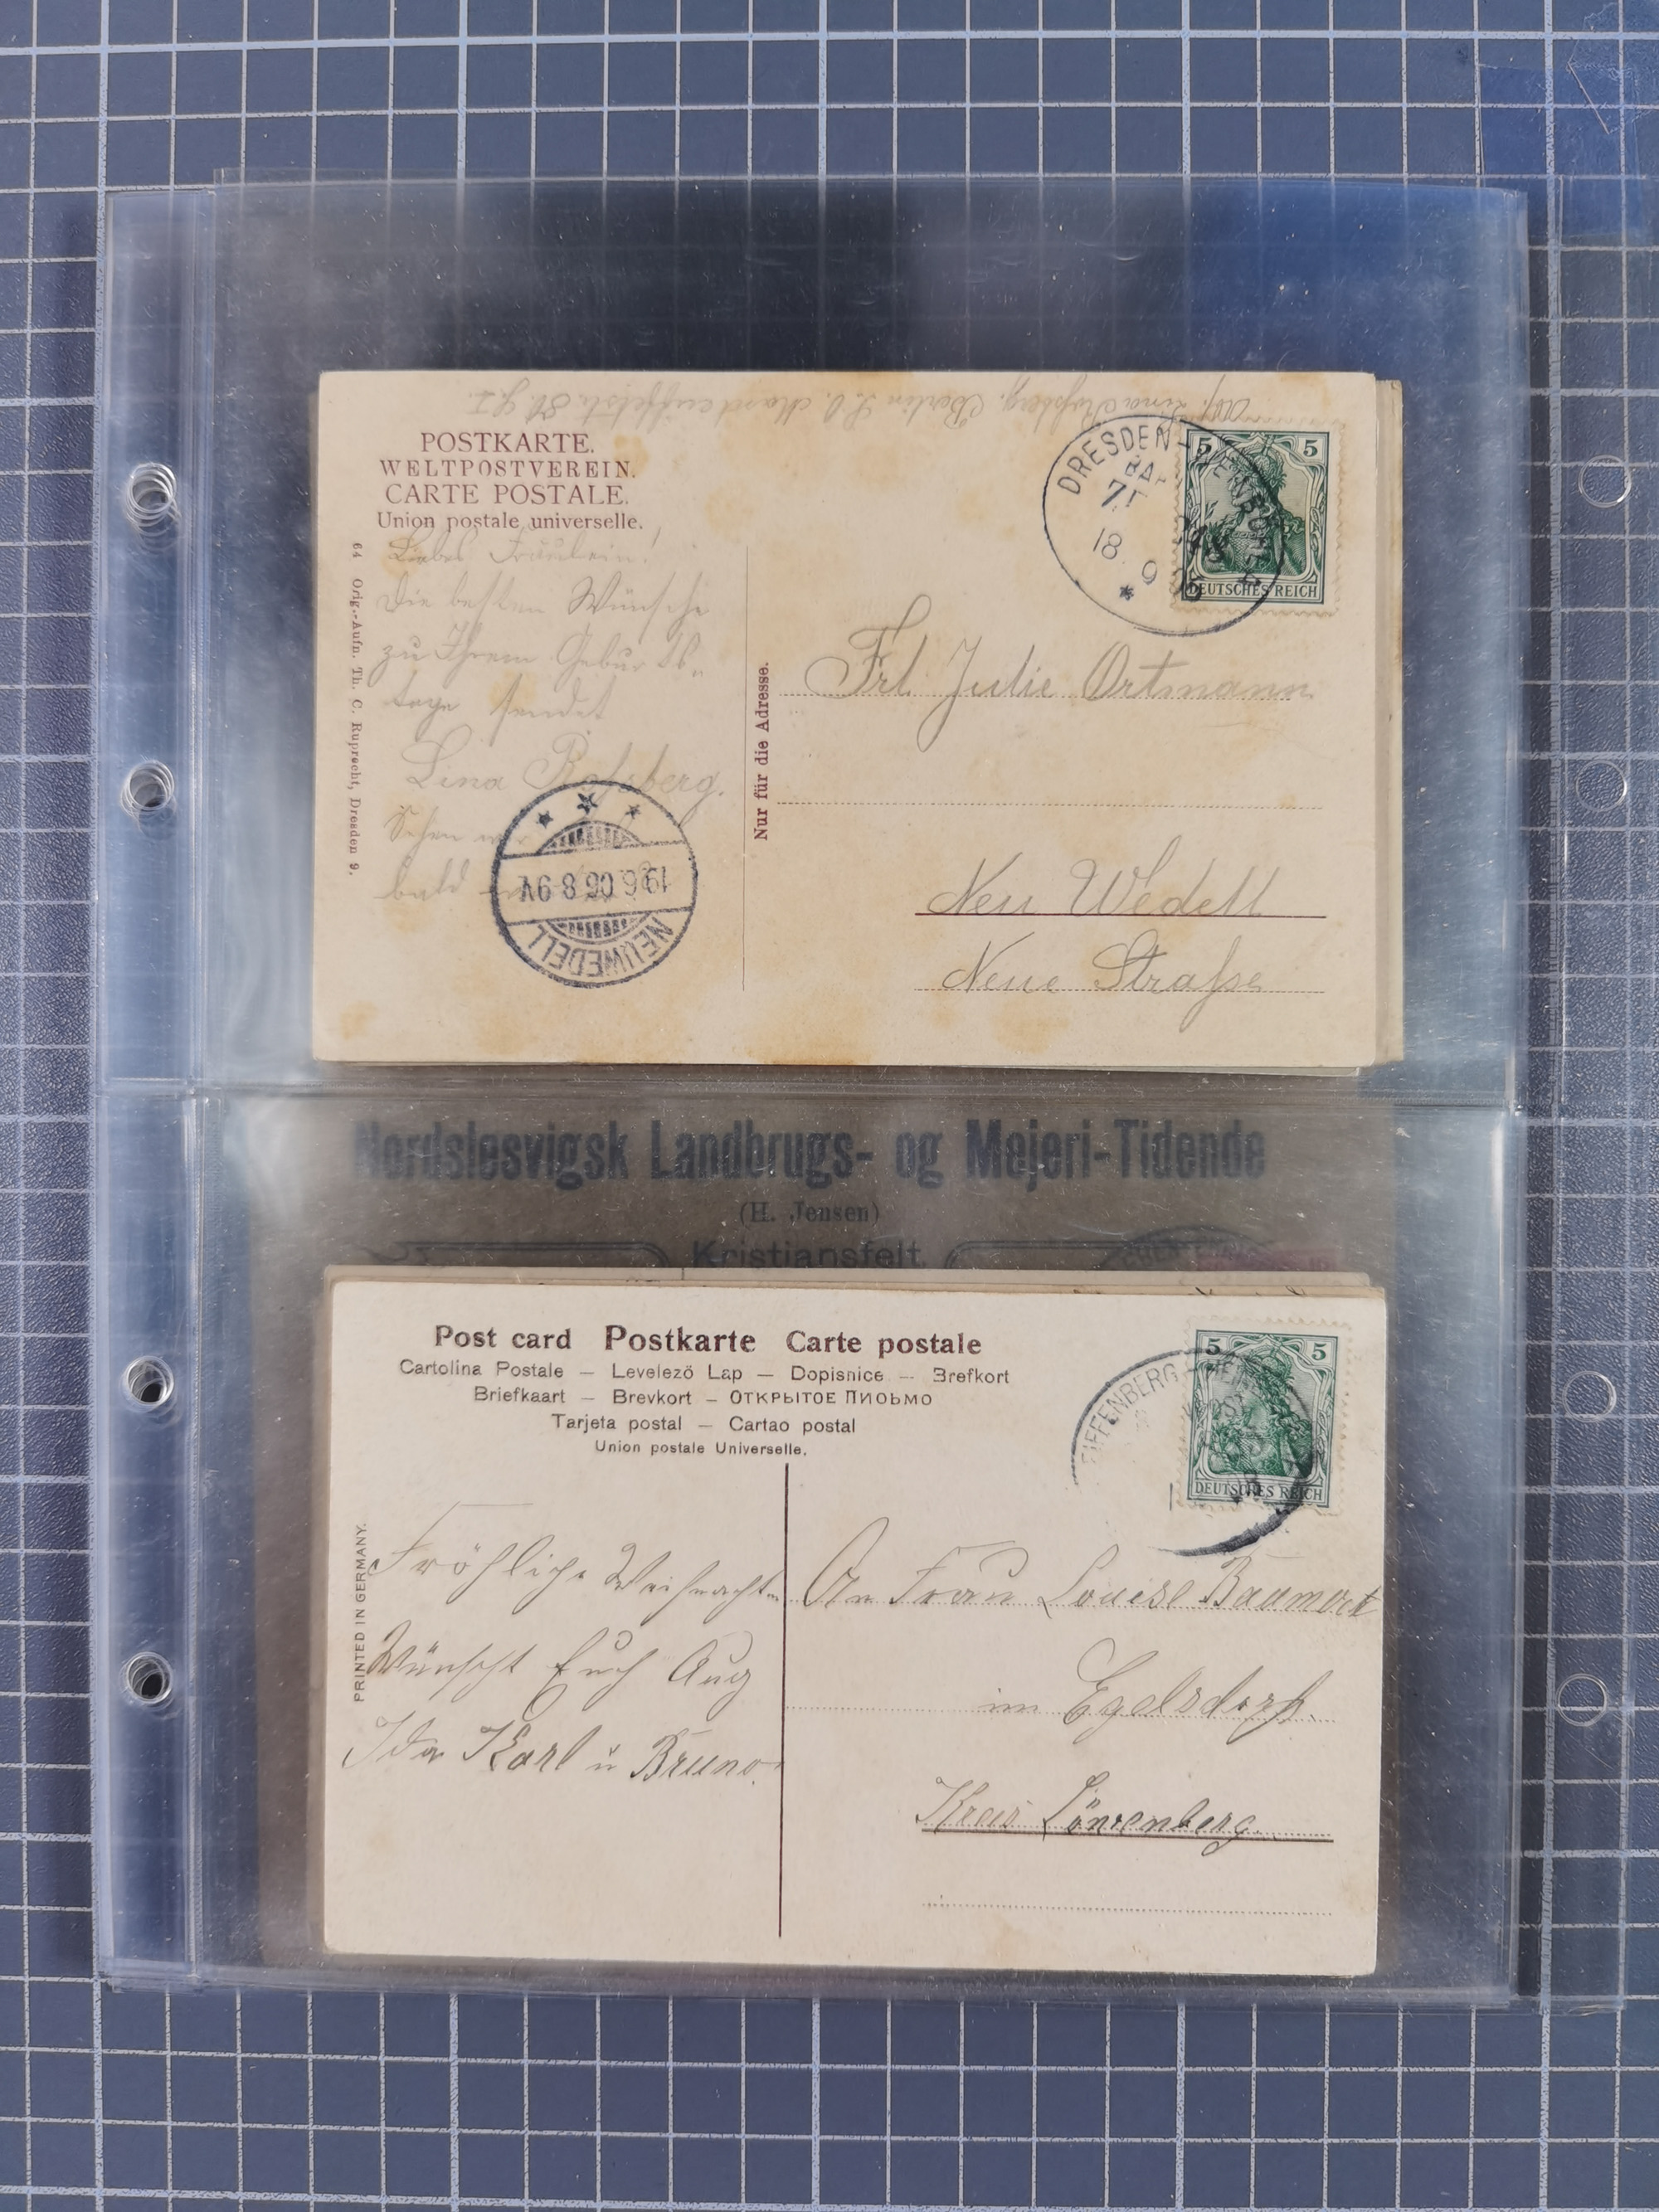 Abs. Lina Roßberg, Berlin S.O.
POSTKARTE.
WELTPOSTVEREIN.
CARTE POSTALE.
Union postale universelle.
64 Orig.-Aufn. Th. C. Ruprecht, Dresden 9.
Liebes Fräulein!
Die besten Wünsche
zu Ihrem Geburts-
tage sendet
Lina Roßberg.
Sehen wir
bald
19.6.05.8-9V.
NEUWEDELL
Nur für die Adresse.
DRESDEN
18 9 05
5 5
DEUTSCHES REICH
Frl. Julie Ortmann
Neu Wedell
Neue Straße
Nordslesvigsk Landbrugs- og Mejeri-Tidende
(H. Jensen)
Kristiansfelt
Post card Postkarte Carte postale
Cartolina Postale – Levelezö Lap – Dopisnice – Brefkort
Briefkaart – Brevkort – ОТКРЫТОЕ ПИСЬМО
Tarjeta postal – Cartao postal
Union postale Universelle.
PRINTED IN GERMANY.
Fröhliche Weihnachten
Wünscht Euch Aug
Ida Karl u Bruno.
EIFFENBERG
5 5
DEUTSCHES REICH
An Frau Louise Baumert
im Egelsdorf.
Kreis Löwenberg.